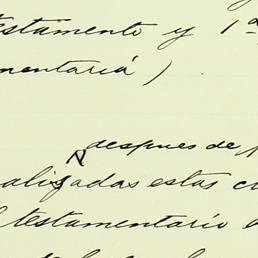 estamento y 1a
mentaria)
despues de
alizadas estas
l testamentario